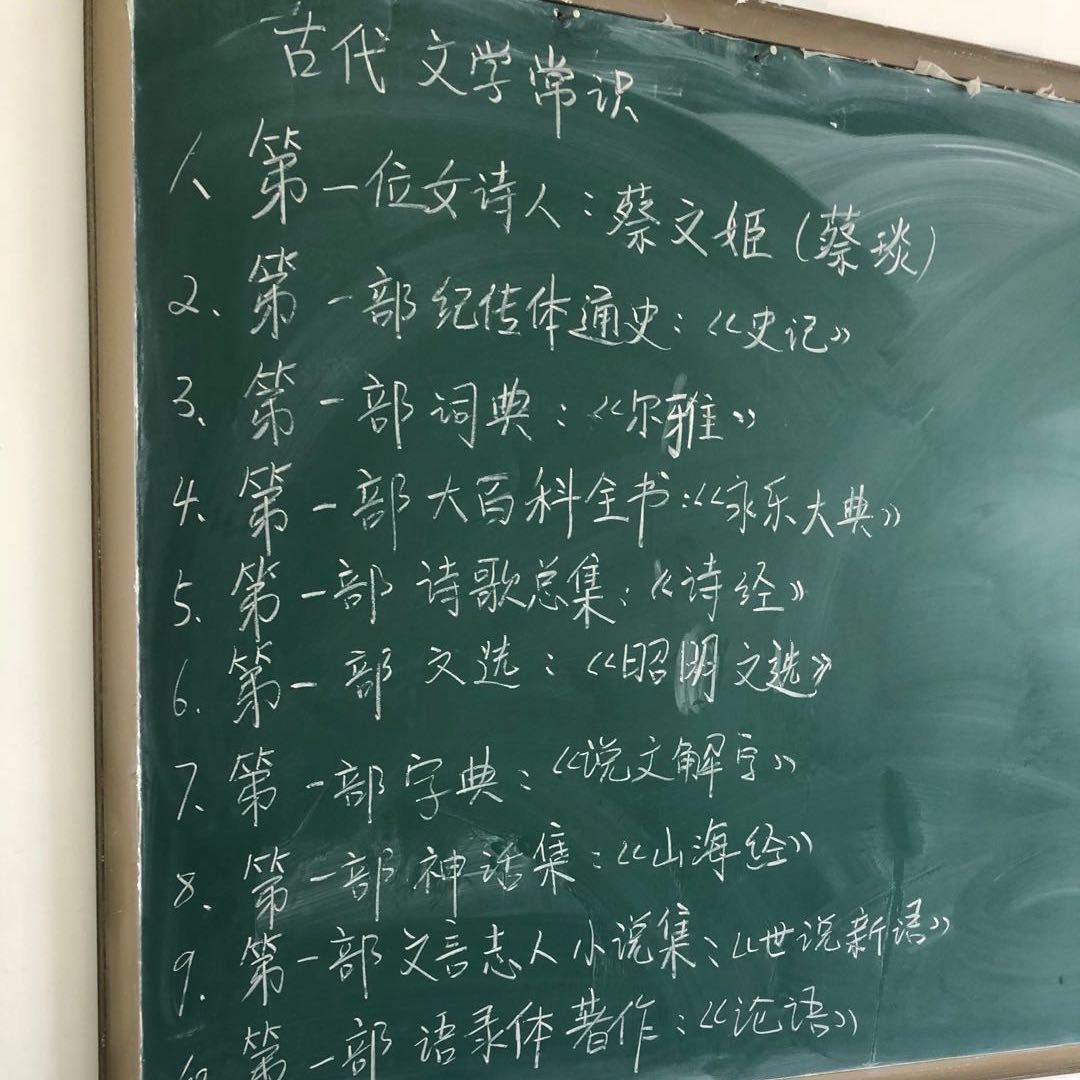 古代文学常识
1、第一位女诗人：蔡文姬（蔡琰）
2、第一部纪传体通史：《史记》
3、第一部词典：《尔雅》
4、第一部大百科全书：《永乐大典》
5、第一部诗歌总集：《诗经》
6、第一部文选：《昭明文选》
7、第一部字典：《说文解字》
8、第一部神话集：《山海经》
9、第一部文言志人小说集：《世说新语》
第一部语录体著作：《论语》